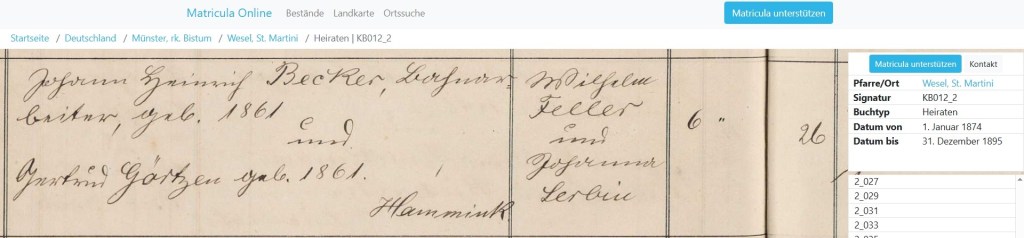 Matricula Online Bestände Landkarte Ortssuche Matricula unterstützen
Startseite / Deutschland / Münster, rk. Bistum / Wesel, St. Martini / Heiraten | KB012_2
Johann Heinrich Becker, Bahnar-
beiter, geb. 1861
und
Gertrud Görtzen geb. 1861.
Hammink.
Wilhelm
Feller
und
Johanna
Serbin
6 "
26
Matricula unterstützen Kontakt
Pfarre/Ort Wesel, St. Martini
Signatur KB012_2
Buchtyp Heiraten
Datum von 1. Januar 1874
Datum bis 31. Dezember 1895
2_027
2_029
2_031
2_033